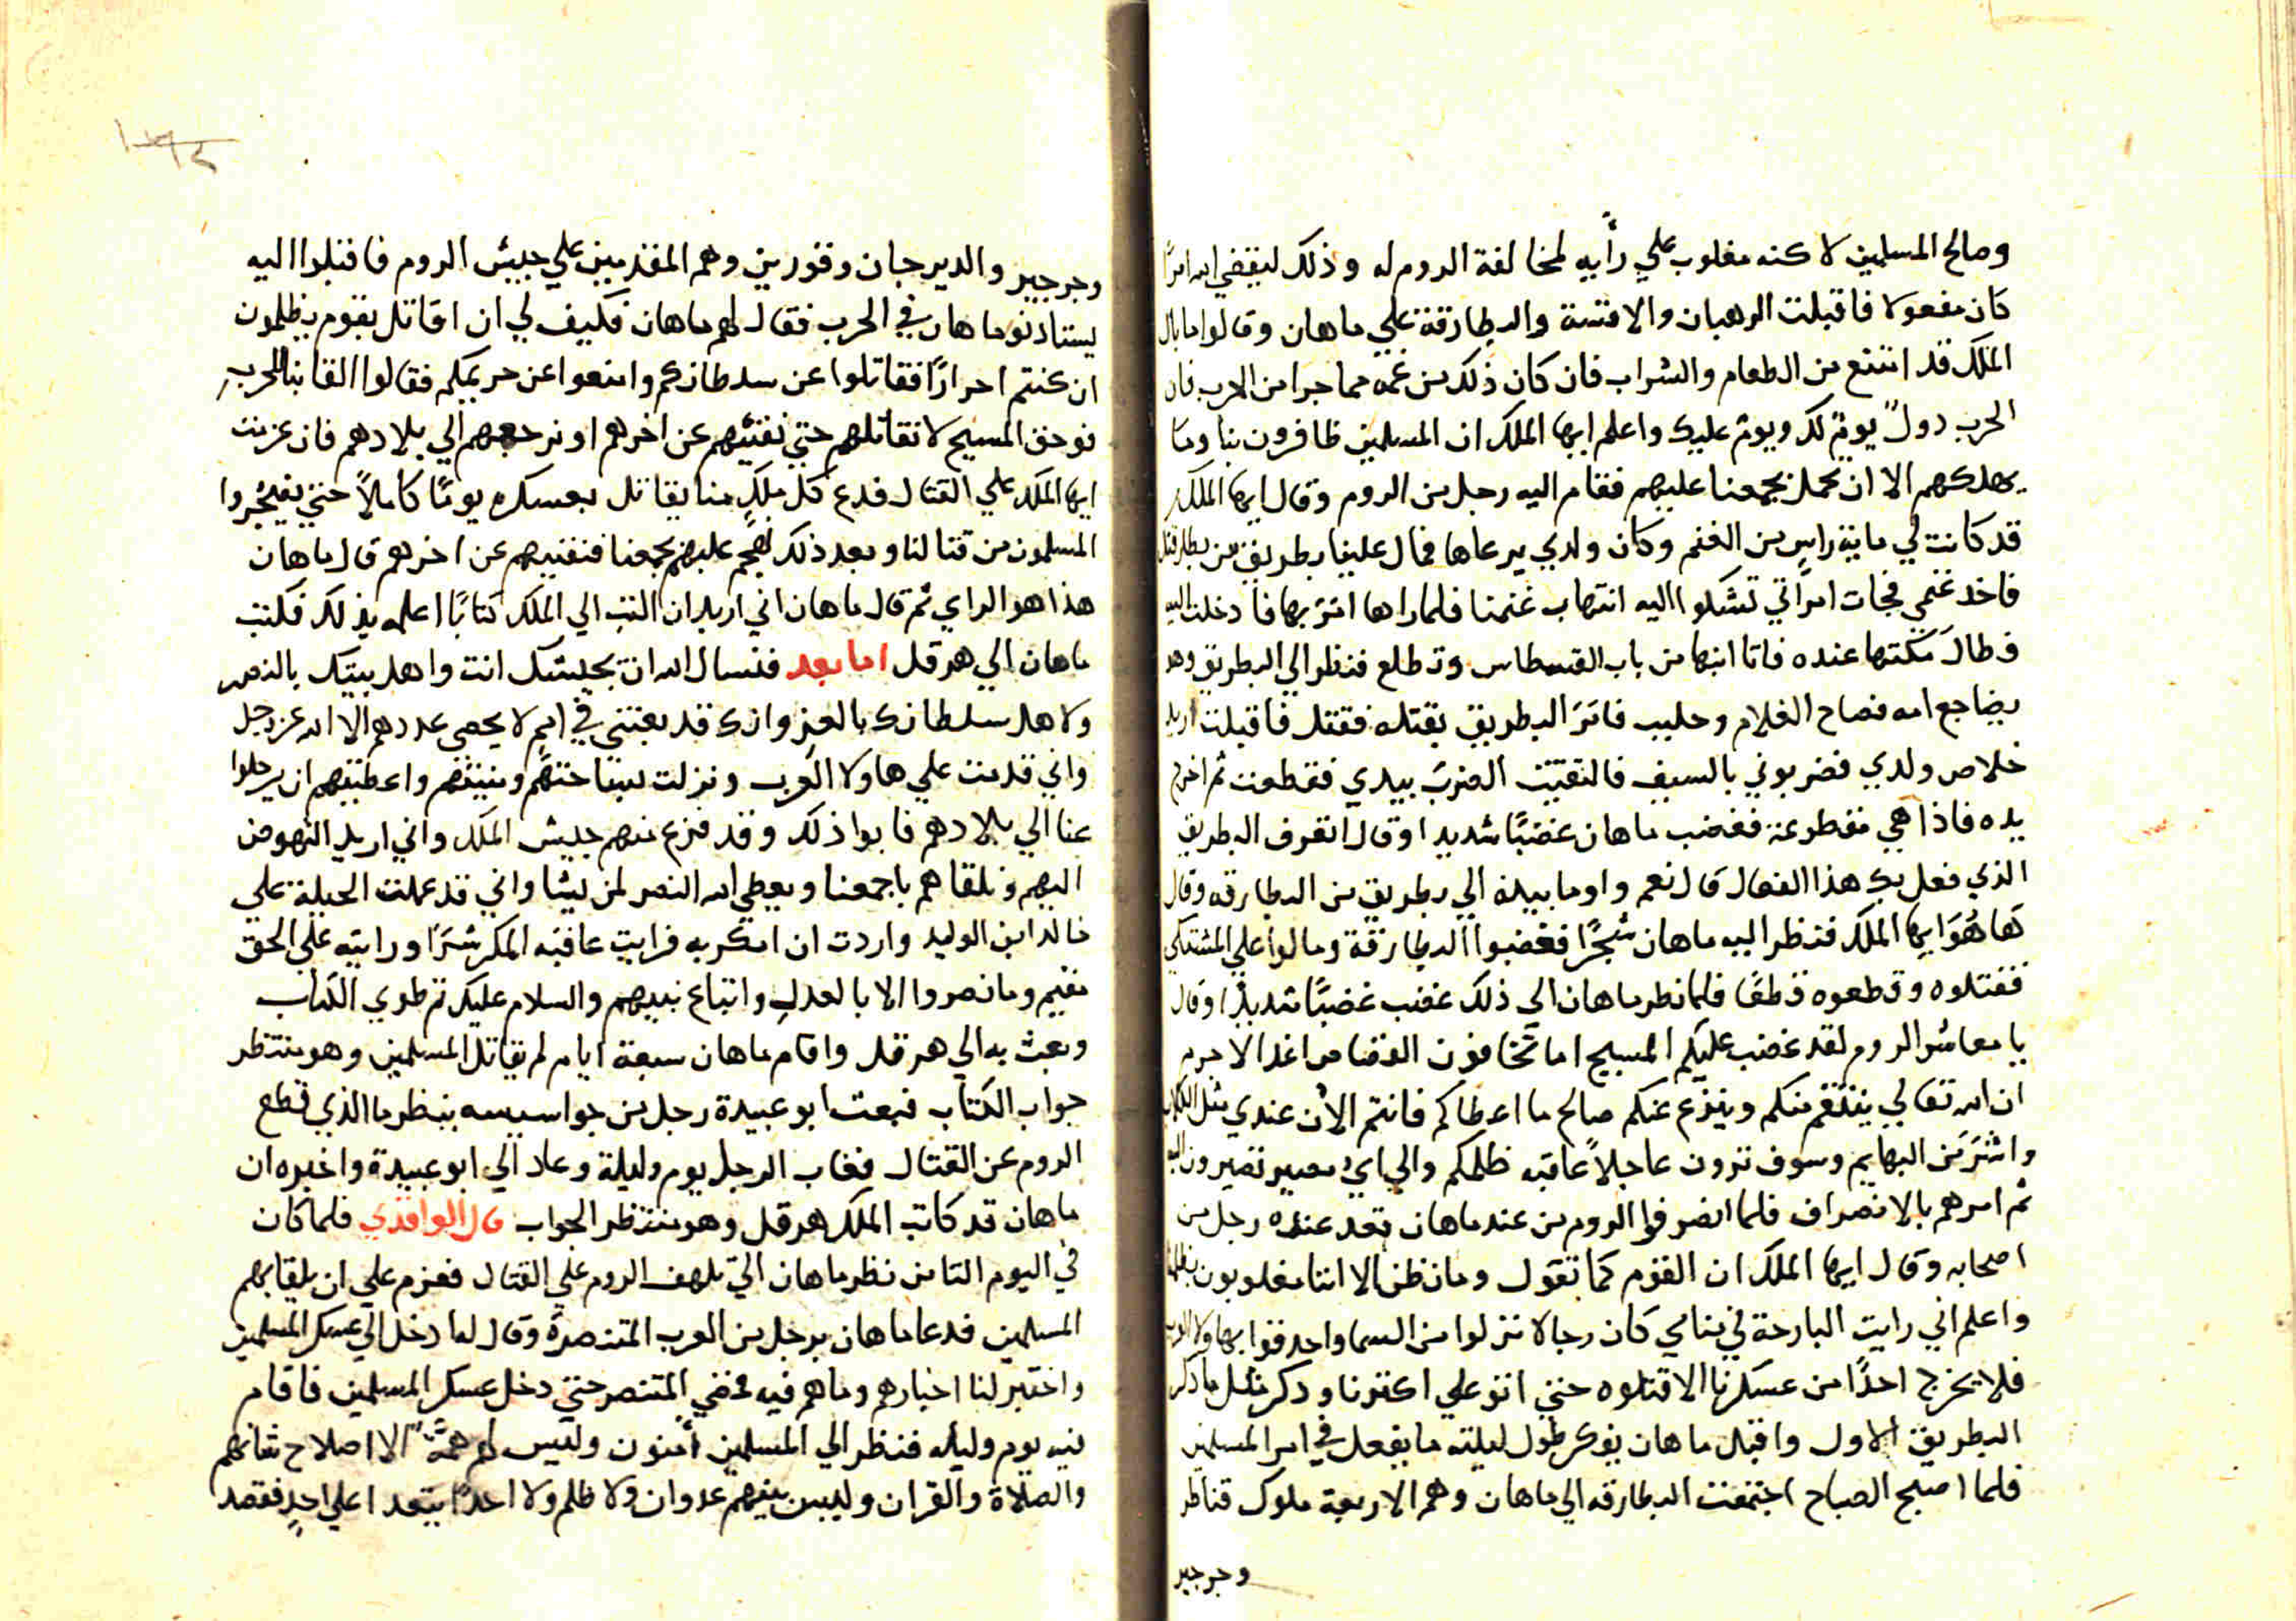 وصالح المسلمين لاكنه مغلوب علي رأيه لمخالفة الروم له وذلك ليقضي الله امرًا
كان مفعولا فاقبلت الرهبان والاقسة والبطارقة علي ماهان وقالوا ما بال
الملك قد امتنع من الطعام والشراب فان كان ذلك من غمه مما جرا من الحرب فان
الحرب دولٌ يومٌ لك ويوم عليك واعلم ايها الملك ان المسلمين ظافرون بنا وما
يهلكهم الا ان نحمل بجمعنا عليهم فقام اليه رجل من الروم وقال ايها الملك
قد كانت لي ماية راسٍ من الغنم وكان ولدي يرعاها فمال علينا بطريق من بطارقتك
فاخد غنمي فجات امراتي تشكوا اليه انتهاب غنمنا فلما راها امر بها فادخلت اليه
فطال مكثها عنده فاتا ابنها من باب القسطاس وتطلع فنظر الي البطريق وهو
يضاجع امه فصاح الغلام وحليب فامر البطريق بقتله فقتل فاقبلت اريد
خلاص ولدي فضربوني بالسيف فالتقيت الضرب بيدي فقطعت ثم اخرج
يده فاذا هي مقطوعة فغضب ماهان غضبًا شديدا وقال اتعرف البطريق
الذي فعل بك هذا الفعال قال نعم واوما بيده الي بطريق من البطارقه وقال
ها هُوَ ايها الملك فنظر اليه ماهان شجرًا فغضبوا البطارقة ومالوا علي المشتكي
فقتلوه وقطعوه قطعًا فلما نظر ماهان الي ذلك غضب غضبًا شديدًا وقال
يا معاشر الروم لقد غضب عليكم المسيح اما تخافون القصاص اغدا لا جرم
ان الله تعالي ينتقم منكم وينزع عنكم صالح ما اعطاكم فانتم الان عندي مثل الكلاب
واشرّ من البهايم وسوف ترون عاجلاً عاقبه ظلمكم والي اي مصير تصيرون اليه
ثم امرهم بالانصراف فلما انصرفوا الروم من عند ماهان قعد عنده رجل من
اصحابه وقال ايها الملك ان القوم كما تقول وما نظن الا اننا مغلوبون بظلمنا
واعلم اني رايت البارحة في منامي كان رجالا نزلوا من السما واحدقوا بها ولا
فلا يخرج احدًا من عسكرنا الا قتلوه حتي اتو علي اكثرنا وذكر مثل ما ذكر
البطريق الاول واقبل ماهان يفكر طول ليلته ما يفعل في امر المسلمين
فلما اصبح الصباح اجتمعت البطارقه الي ماهان وهم الاربعة ملوك قناطر
وجرجير
وجرجير والديرجان وقورين وهم المقدمين علي جيش الروم فاقبلوا اليه
يستاذنو ماهان في الحرب فقال لهم ماهان فكيف لي ان اقاتل بقوم يظلمون
ان كنتم احرارًا فقاتلوا عن سلطانكم وامنعوا عن حريمكم فقالوا القا بنا للحرب
فوحق المسيح لا نقاتلهم حتي نفنيهم عن اخرهم او نرجعهم الي بلادهم فان عزمت
ايها الملك علي القتال فدع كل ملكٍ منا يقاتل بعسكره يومًا كاملاً حتي يضجروا
المسلمون من قتالنا وبعد ذلك نهجم عليهم بجمعنا فنفنيهم عن اخرهم قال ماهان
هذا هو الراي ثم قال ماهان اني اريد ان اكتب الي الملك كتابًا اعلمه بذلك فكتب
ماهان الي هرقل اما بعد فنسال الله ان بجيشك انت واهل بيتك بالنصر
ولاهل سلطانك بالعز وانك قد بعثتني في امم لا يحصي عددهم الا الله عز وجل
واني قدمت علي هاولا العرب ونزلت بساحتهم ومنيتهم واعطيتهم ان يرحلوا
عنا الي بلادهم فابوا ذلك وقد فزع منهم جيش الملك واني اريد النهوض
اليهم ونلقاهم باجمعنا ويعطي الله النصر لمن يشا واني قد عملت الحيلة علي
خالد ابن الوليد واردت ان امكر به فرايت عاقبه المكر شرًا ورايته علي الحق
مقيم وما نصروا الا بالعدل واتباع نبيهم والسلام عليك ثم طوي الكتاب
وبعث به الي هرقل واقام ماهان سبعة ايام لم يقاتل المسلمين وهو منتظر
جواب الكتاب فبعث ابو عبيدة رجل من جواسيسه ينظر ما الذي قطع
الروم عن القتال فغاب الرجل يوم وليلة وعاد الي ابو عبيدة واخبره ان
ماهان قد كاتب الملك هرقل وهو منتظر الجواب قال الواقدي فلما كان
في اليوم الثامن نظر ماهان الي تلهف الروم علي القتال فعزم علي ان يلقا بهم
المسلمين فدعا ماهان برجل من العرب المتنصرة وقال له ادخل الي عسكر المسلمين
واختبر لنا اخبارهم وما هم فيه فمضي المتنصر حتي دخل عسكر المسلمين فاقام
فيه يوم وليله فنظر الي المسلمين آمنون وليس لهم همةٌ الا اصلاح شانهم
والصلاة والقران وليس بينهم عدوان ولا ظلم ولا احدًا يتعدا علي احدٍ فقصد